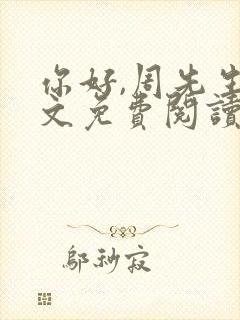 你好,周先生
文免費閱讀
鄔秒寂